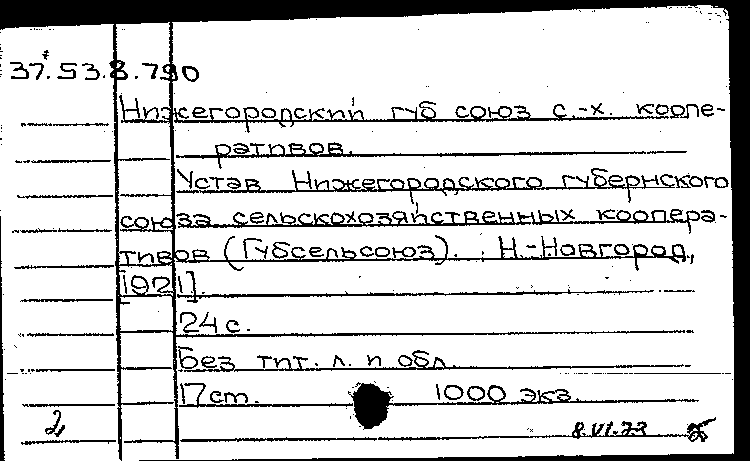 37.53.8.790
Нижегородский губ союз с.-х. коопе-
ративов.
Устав Нижегородского губернского
союза сельскохозяйственных коопера-
тивов (Губсельсоюз). Н.-Новгород,
[1921].
24 с.
Без тит. л. и обл.
17 см. 1000 экз.
2
8.VI.73